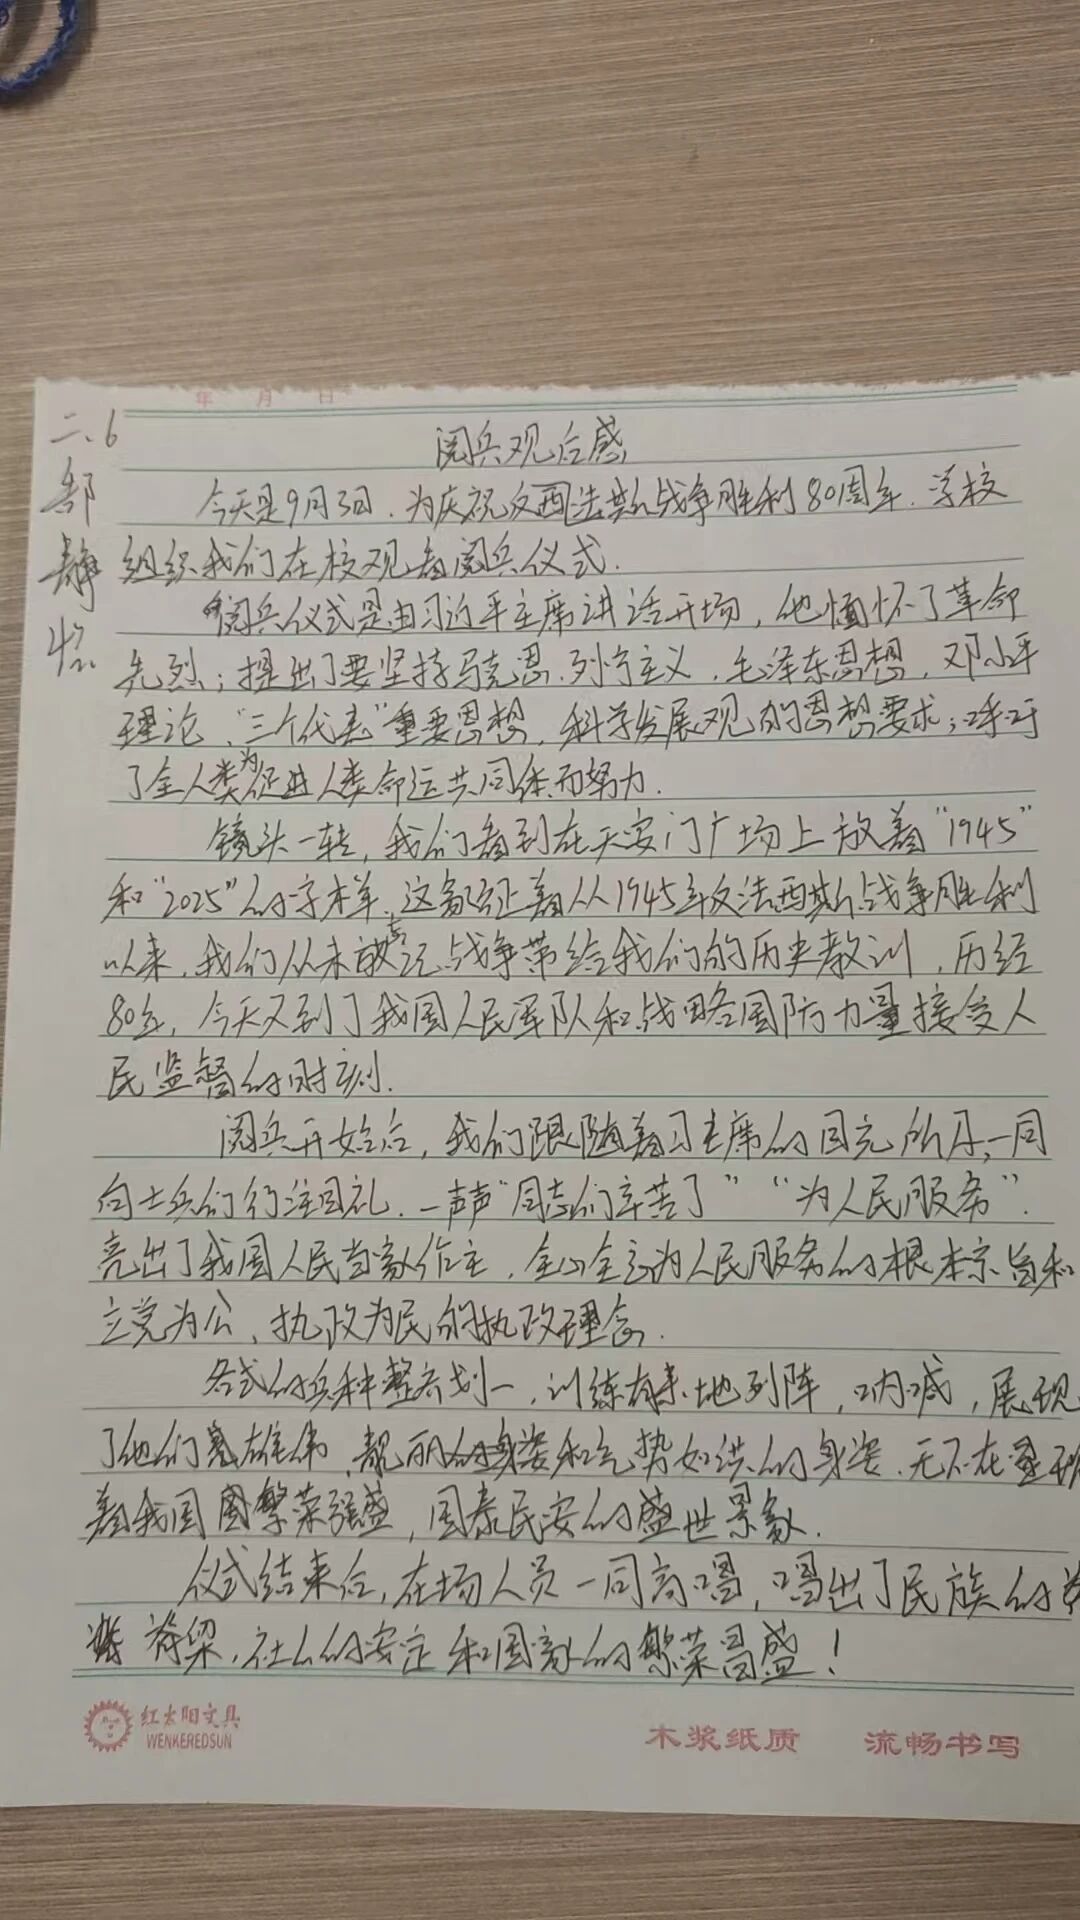 年 月 日
二、6
部静怡
阅兵观后感
今天是9月3日，为庆祝反西法斯战争胜利80周年，学校
组织我们在校观看阅兵仪式.
阅兵仪式是由习近平主席讲话开场，他缅怀了革命
先烈；提出了要坚持马克思、列宁主义，毛泽东思想，邓小平
理论，“三个代表”重要思想，科学发展观的思想要求；呼吁
了全人类为促进人类命运共同体而努力.
镜头一转，我们看到在天安门广场上放着“1945”
和“2025”的字样，这象征着从1945年反法西斯战争胜利
以来，我们从未敢忘记战争带给我们的历史教训，历经
80年，今天又到了我国人民军队和战略国防力量接受人
民监督的时刻.
阅兵开始后，我们跟随着习主席的目光所及，一同
向士兵们行注目礼，一声声“同志们辛苦了”“为人民服务”.
亮出了我国人民当家作主，全心全意为人民服务的根本宗旨和
立党为公、执政为民的执政理念.
各式的兵种整齐划一，训练有素地列阵，呐喊，展现
了他们雄伟、靓丽的身姿和气势如洪的身姿，无不在
着我国繁荣强盛，国泰民安的盛世景象.
仪式结束后，在场人员一同高唱，唱出了民族的
脊梁，社会的安定和国家的繁荣昌盛！
红太阳文具
WENKEREDSUN
木浆纸质 流畅书写